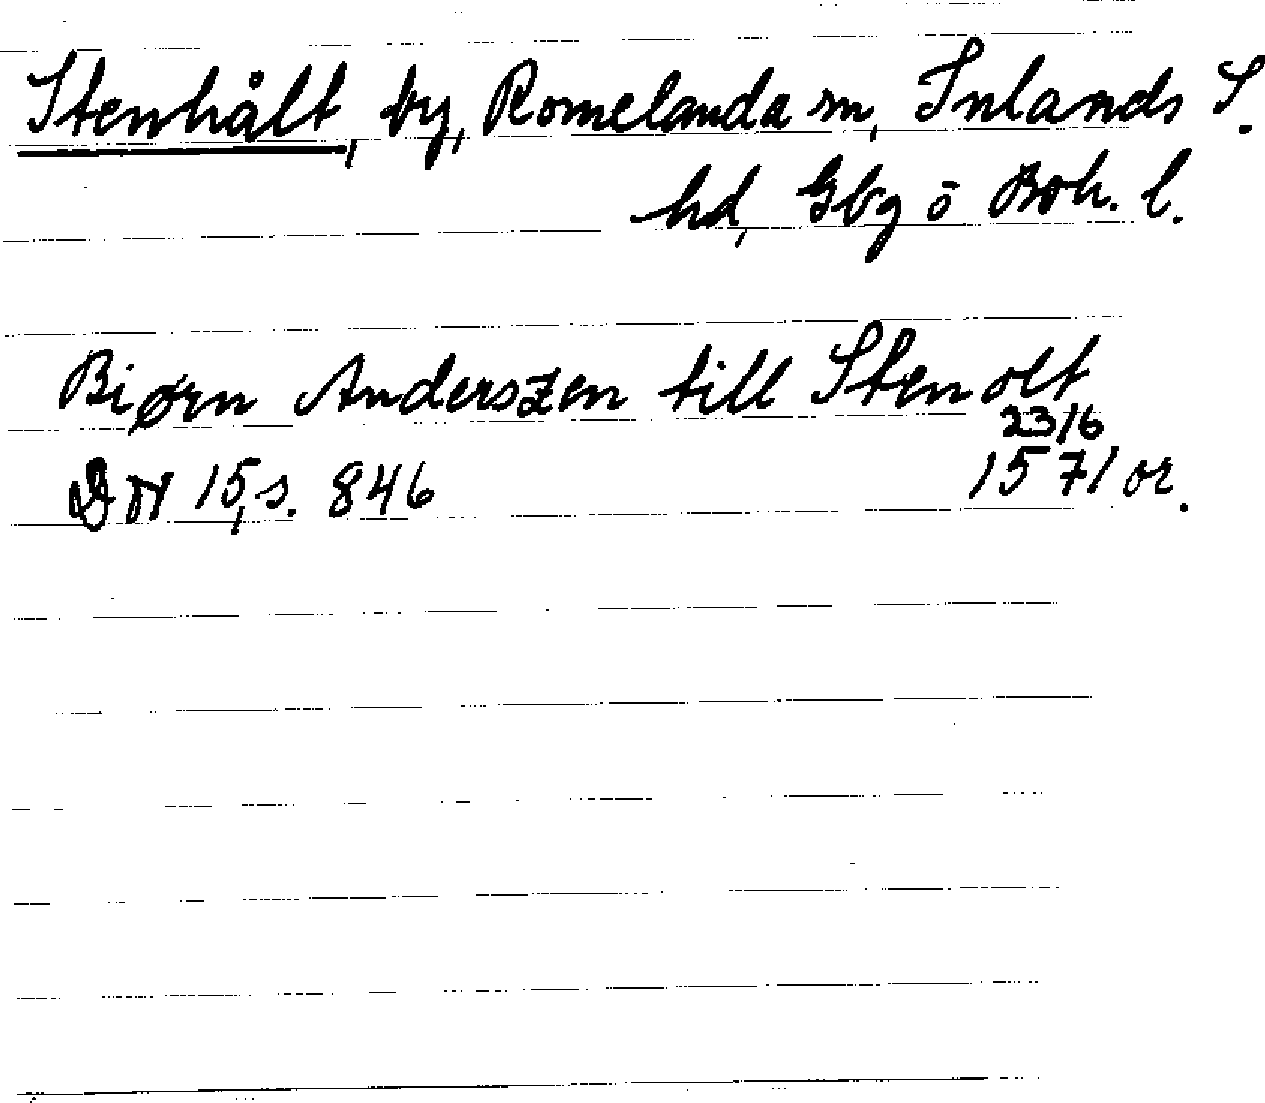 Stenhålt, by, Romelanda sn, Inlands S.
hd, Gbg o Boh. l.
Biørn Anderszen till Stenolt
23/6
DN 15, s. 846 1571 or.